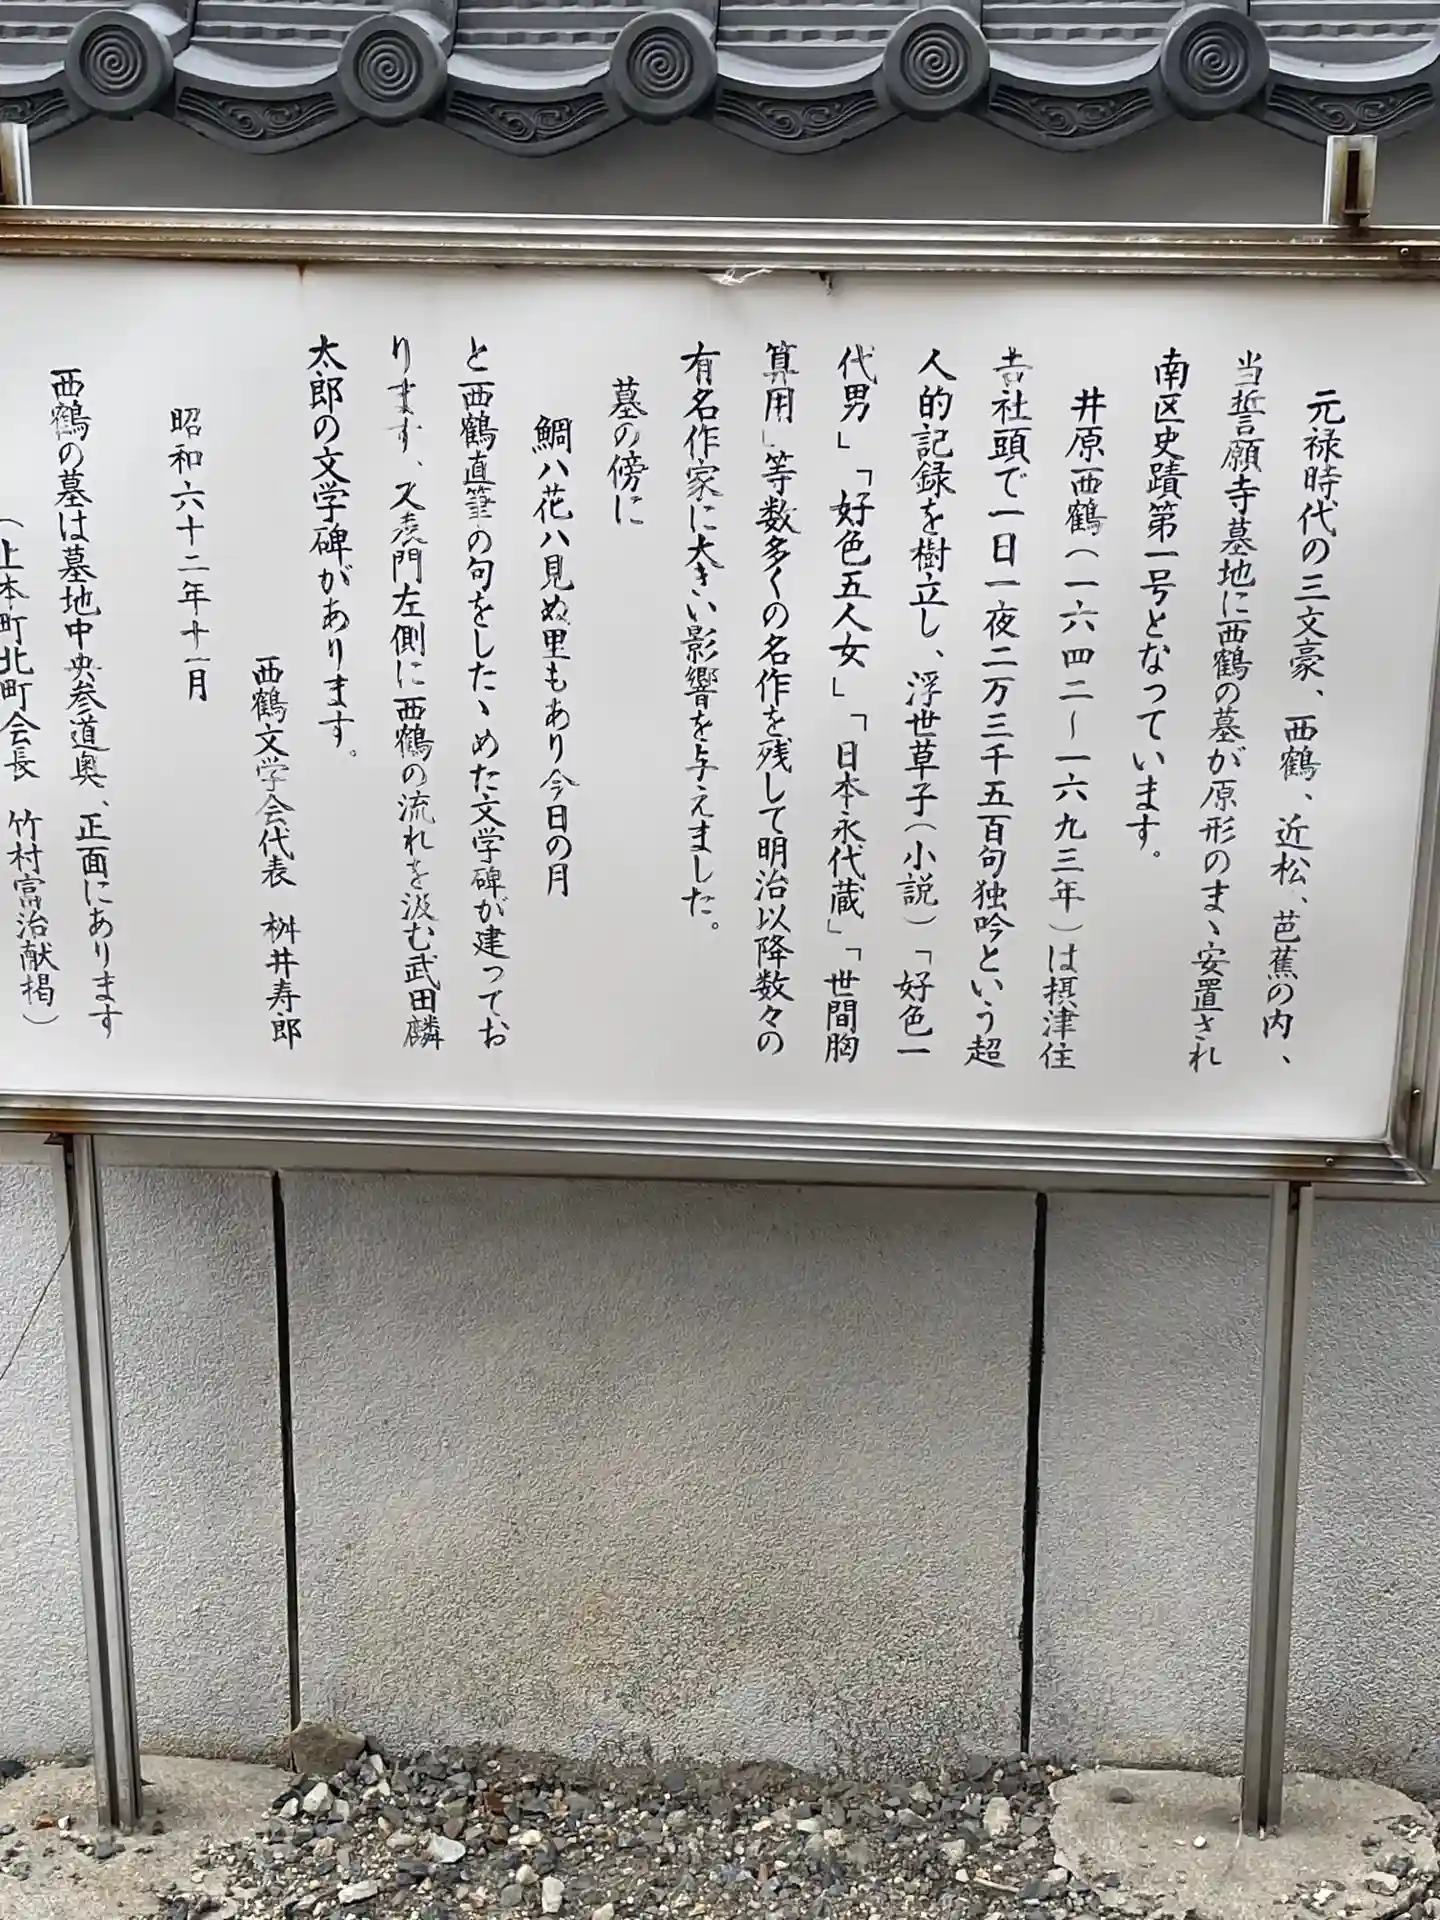 元禄時代の三文豪、西鶴、近松、芭蕉の内、
当誓願寺墓地に西鶴の墓が原形のまゝ安置され
南区史蹟第一号となっています。
井原西鶴(一六四二~一六九三年)は摂津住
吉社頭で一日一夜二万三千五百句独吟という超
人的記録を樹立し、浮世草子(小説)「好色一
代男」「好色五人女」「日本永代蔵」「世間胸
算用」等数多くの名作を残して明治以降数々の
有名作家に大きい影響を与えました。
墓の傍に
鯛ハ花ハ見ぬ里もあり今日の月
と西鶴直筆の句をしたゝめた文学碑が建ってお
ります、又表門左側に西鶴の流れを汲む武田麟
太郎の文学碑があります。
西鶴文学会代表 桝井寿郎
昭和六十二年十一月
西鶴の墓は墓地中央参道奥、正面にあります
(上本町北町会長 竹村富治献掲)